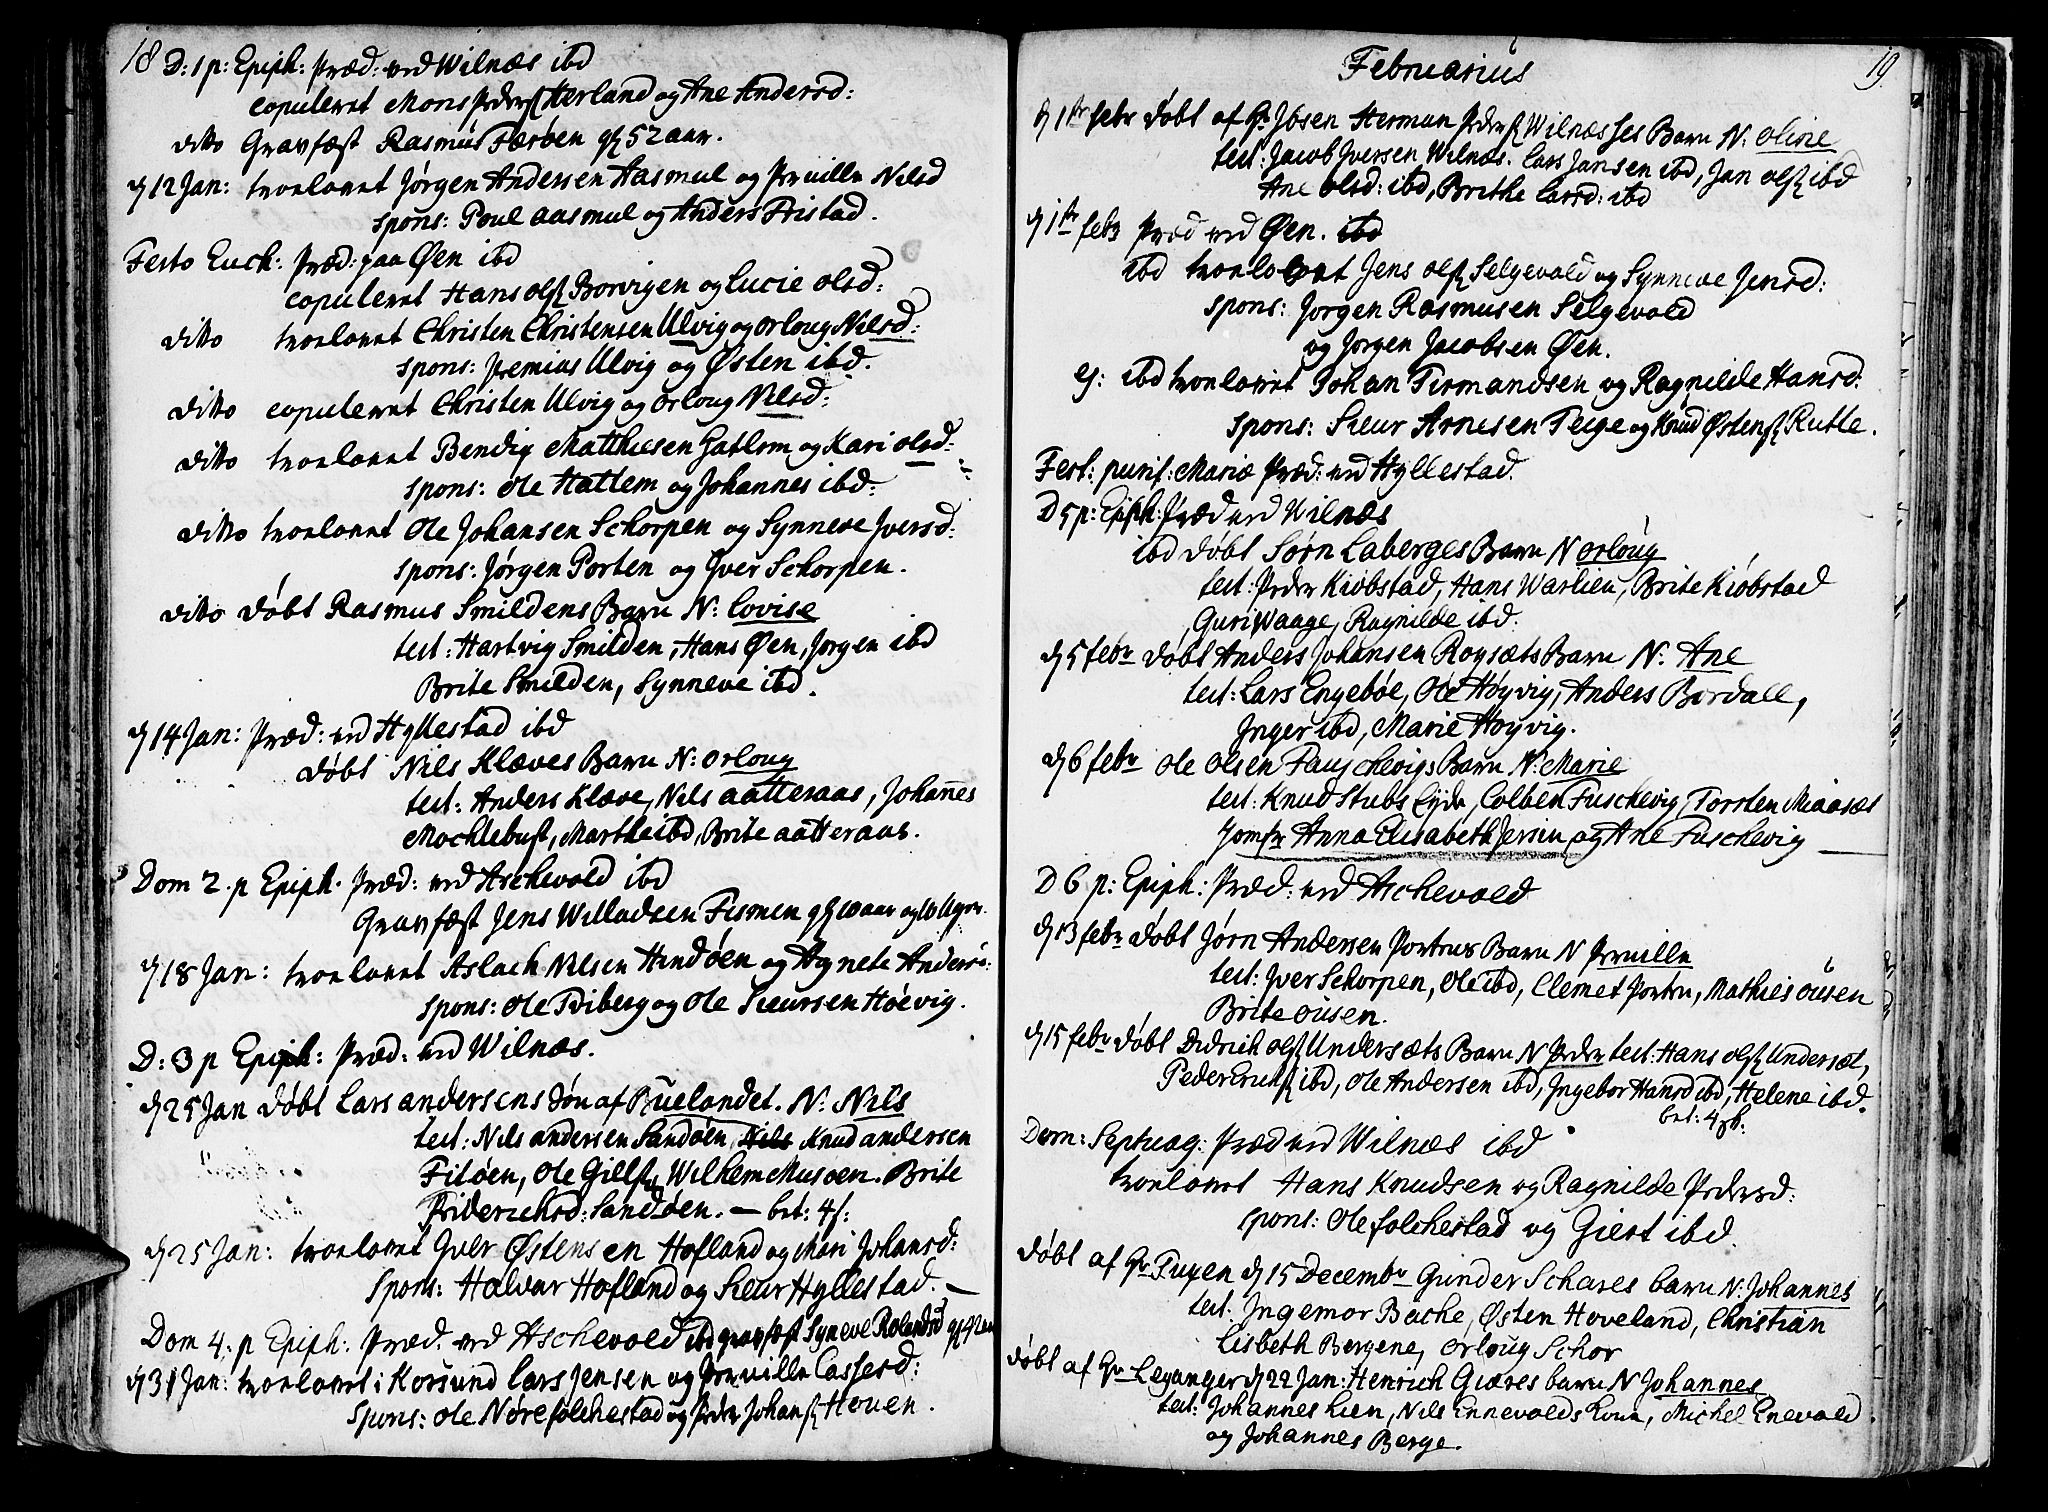 18
D: 1 p: Epiph: Præd: ved Wilnæs ibd
copuleret Mons Peders Herland og Ane Andersd:
ditto Gravfæst Rasmus Færøen 52 aar.
d 12 Jan: trorlovet Jørgen Andersen Aasmul og Pernille Nilsd
spons: Poul Aasmul og Anders Tristad.
Festo Euch: Præd: paa Øen ibd
copuleret Hans Ols Borvigen og Lucie Olsd:
ditto trorlovet Christen Christensen Ulvig og Orloug Nilsd:
spons: Jremias Ulvig og Østen ibd.
ditto copuleret Christen Ulvig og Orloug Nilsd:
ditto trorlovet Bendix Matthiesen Hatlem og Kari Olsd:
spons: Ole Hatlem og Johannes ibd:
ditto trorlovet Ole Johansen Schorpen og Synneve Jversd:
spons: Jørgen Porten og Jver Schorpen.
ditto døbt Rasmus Smildens Barn N: Lovise
test: Hartvig Smilden, Hans Øen, Jorgen ibd
Brite Smilden, Synneve ibd.
d 14 Jan: Præd: ved Hyllestad ibd
døbt Nils Klæves Barn N: Orloug
test: Anders Klæve, Nils Aatteraas, Johannes
Mochlebust, Marthe ibd, Brite Aatteraas.
Dom 2. p Epiph. Præd: ved Aschevold ibd
Gravfæst Jens Willadsen Fismen aar og
d 18 Jan: trorlovet Aslach Nilsen Hindøen og Agnete Andersd:
spons: Ole Tviberg og Ole Siursen Høevig.
D: 3 p Epiph: Præd: ved Wilnæs.
d 25 Jan døbt Lars Andersens Søn af Buelandet. N: Nils
test: Nils Andersen Sandøen, Knud Andersen
Fitøen, Ole Gills, Wilhem Musøen. Brite
Friderichsd: Sandøen. — bet: 4 s:
d 25 Jan: trorlovet Jver Østensen Hofland og Mari Johansd:
spons: Halvar Hofland og Siur Hyllestad. —
Dom 4. p Epiph: Præd. ved Aschevold ibd gravfæst Syneve Rolandsd 42 aar
d 31 Jan: trorlovet i Korsund Lars Jensen og Pernille Cassesd:
spons: Ole Nørefolchestad og Peder Johans Hoven.
Februarius 19.
d 1ste febr døbt af Hr Jbsen Herman Peders Wilnæsses Barn N: Oline
test: Jacob Jversen Wilnæs. Lars Jansen ibd, Jan Ols ibd
Ane Olsd: ibd, Brithe Larsd: ibd
d 1ste febr Præd ved Øen. ibd
ibd trorlovet Jens Ols Selgevold og Synneve Jensd:
spons: Jorgen Rasmusen Selgevold
og Jorgen Jacobsen Øen.
ej: ibd trorlovet Johan Firmandsen og Ragnilde Hansd:
spons: Siur Arnesen Teige og Knud Østens Rutle.
Fest: purif: Mariæ Præd: ved Hyllestad.
D 5 p: Epiph: Præd ved Wilnæs
ibd døbt Sørn Laberges Barn N Orloug
test: Peder Kiøbstad, Hans Warlien, Brite Kiøbstad
Guri Waage, Ragnilde ibd.
d 5 febr døbt Anders Johansen Roysæts Barn N: Ane
test: Lars Engebøe, Ole Høyvig, Anders Bordall,
Jnger ibd, Marie Høyvig.
d 6 febr Ole Olsen Fauschevigs Barn N: Marie
test: Knud Stubs Eyde, Colben Fuschevig, Torsten Miaasæt
Jomfr Anna Elisabeth Jersin og Ane Fuschevig —
D 6 p: Epiph: Præd: ved Aschevold
d 13 febr døbt Jørn Andersen Portnes Barn N Pernille
test: Jver Schorpen, Ole ibd, Clemet Porten, Mathies Ousen
Brite Ousen.
d 15 febr døbt Didrich Ols Undersæts Barn N Peder test: Hans Ols Undersæt,
Peder Erichs ibd, Ole Andersen ibd, Jngebor Hansd ibd, Helene ibd.
bet: 4 sk:
Dom: Septuag: Præd ved Wilnæs ibd
trorlovet Hans Knudsen og Ragnilde Pedersd:
spons: Ole Folchestad og Giert ibd
døbt af Hr Fuyen d 15 Decembr Gunder Schares barn N: Johannes
test: Jngemor Bache, Østen Hoveland, Christian
Lisbeth Bergene, Orloug Schor
døbt af Hr Leganger d 22 Jan: Henrich Giæres barn N Johannes
test: Johannes Lien, Nils Ennevolds, Michel Enevold
og Johannes Berge.